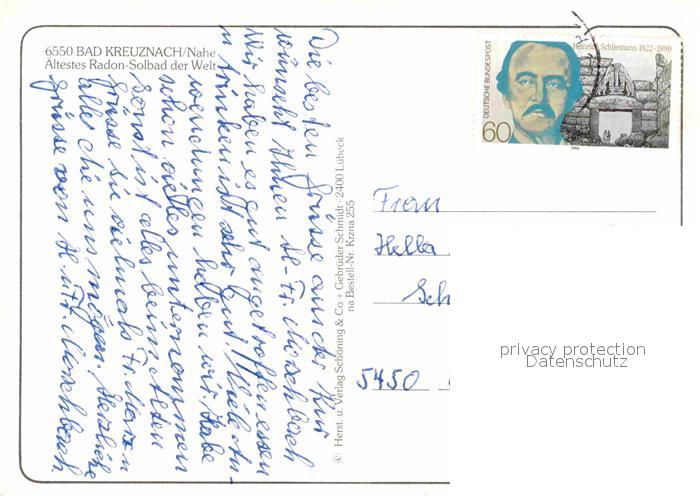 6550 BAD KREUZNACH/Nahe
Ältestes Radon-Solbad der Welt
Die besten Grüsse aus der Kur
wünscht Ihnen H. Fr. Morschbach
Wir haben es gut angetroffen essen
u trinken ist sehr gut. Viele An-
wendungen haben wir. Habe
schon vieles unternommen
Sonst ist alles beim Alten
Grüße Sie vielmals Fr.
alles die uns mögen. Herzliche
Grüsse von H. u. Fr. Morschbach
© Herst. u. Verlag Schöning & Co + Gebrüder Schmidt · 2400 Lübeck
na Bestell-Nr. Krzna 255
DEUTSCHE BUNDESPOST
60
Heinrich Schliemann 1822-1890
1990
Frau
Hella
Sch
5450
privacy protection
Datenschutz